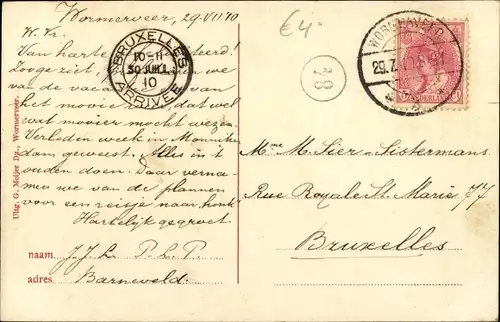 Wormerveer, 29.VII.'10
W. Vr.
Van harte
Zoo ge ziet,
van de vaca
van het mooie we
wat mooier mocht wezen.
Verleden week in Monniken
dam geweest. Alles in 't
ouden doen. Daar verna-
men we van de plannen
voor een reisje naar honk.
Hartelijk gegroet.
naam. J.J.L. P.L.P.
adres Barneveld.
Uitg. G. Meijer Dz., Wormerveer.
BRUXELLES
10-11
30 JUIL.
10
ARRIVÉE
€4-
78
29.7.
NEDERLAND
Mme M. Sier-Sistermans
Rue Royale St. Marie 77
Bruxelles